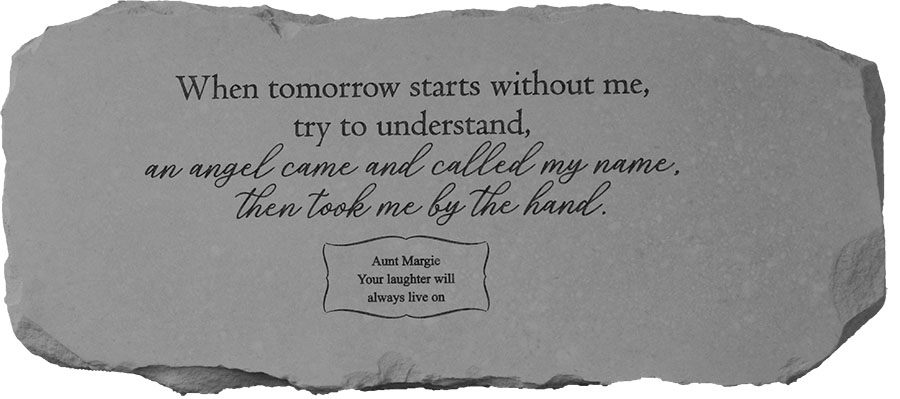 When tomorrow starts without me,
try to understand,
an angel came and called my name,
then took me by the hand.
Aunt Margie
Your laughter will
always live on